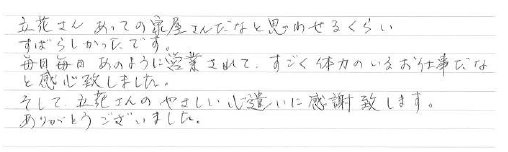 立花さん あっての家屋さんだなと思わせるくらい
すばらしかったです。
毎日毎日 あのように営業されて、すごく体力のいるお仕事だな
と感心致しました。
そして 立花さんの やさしい心遣いに感謝致します。
ありがとうございました。